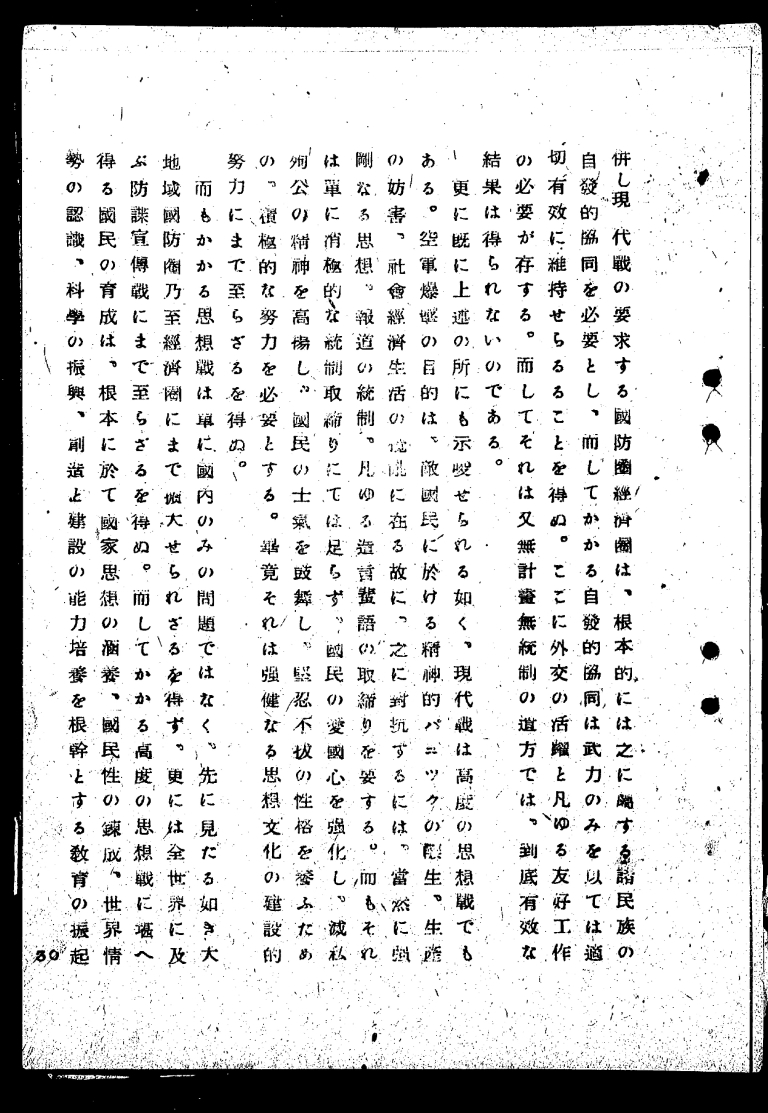 併し現代戰の要求する國防圈經濟圈は、根本的には之に屬する諸民族の
自發的協同を必要とし、而してかかる自發的協同は武力のみを以ては適
切有效に維持せらるることを得ぬ。ここに外交の活躍と凡ゆる友好工作
の必要が存する。而してそれは又無計畫無統制の遣方では、到底有效な
結果は得られないのである。
更に既に上述の所にも示唆せられる如く、現代戰は高度の思想戰でも
ある。空軍爆擊の目的は、敵國民に於ける精神的パニツクの生、生產
の妨害、社會經濟生活のに在る故に、之に對抗するには、當然に强
剛なる思想、報道の統制、凡ゆる造言蜚語の取締りを要する。而もそれ
は單に消極的な統制取締りにては足らず、國民の愛國心を强化し、滅私
殉公の精神を高揚し、國民の士氣を鼓舞し、堅忍不拔の性格を養ふため
の、積極的な努力を必要とする。畢竟それは强健なる思想文化の建設的
努力にまで至らざるを得ぬ。
而もかかる思想戰は單に國内のみの問題ではなく、先に見たる如き大
地域國防圈乃至經濟圈にまで擴大せられざるを得ず、更には全世界に及
ぶ防諜宣傳戰にまで至らざるを得ぬ。而してかかる高度の思想戰に堪へ
得る國民の育成は、根本に於て國家思想の涵養、國民性の鍊成、世界情
勢の認識、科學の振興、創造と建設の能力培養を根幹とする敎育の振起
30